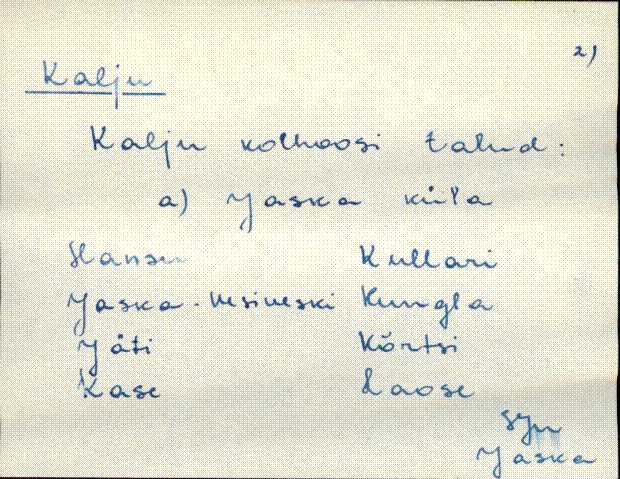 2)
Kalju
Kalju kolhoosi talud:
a) Jaska küla
Hansu Kullari
Jaska-Vesiveski Kungla
Jäti Kõrtsi
Kase Laose
Syn
Jaska